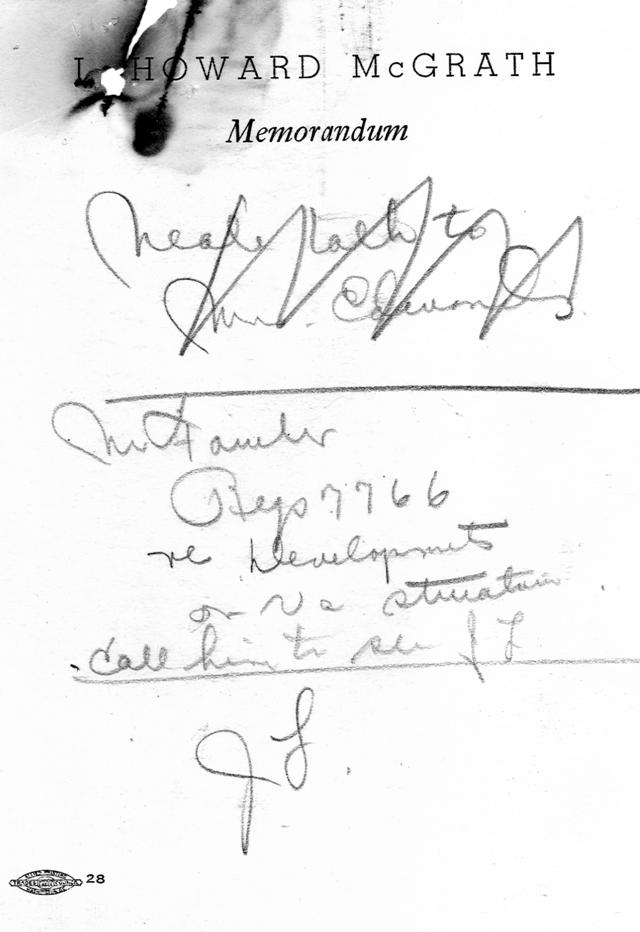 J. HOWARD McGRATH
Memorandum
Neale talk to
Mrs. Edwards
Mr Fowler
Regs 7766
re Developments
on Va situation.
Call him to see J L
J L.
28